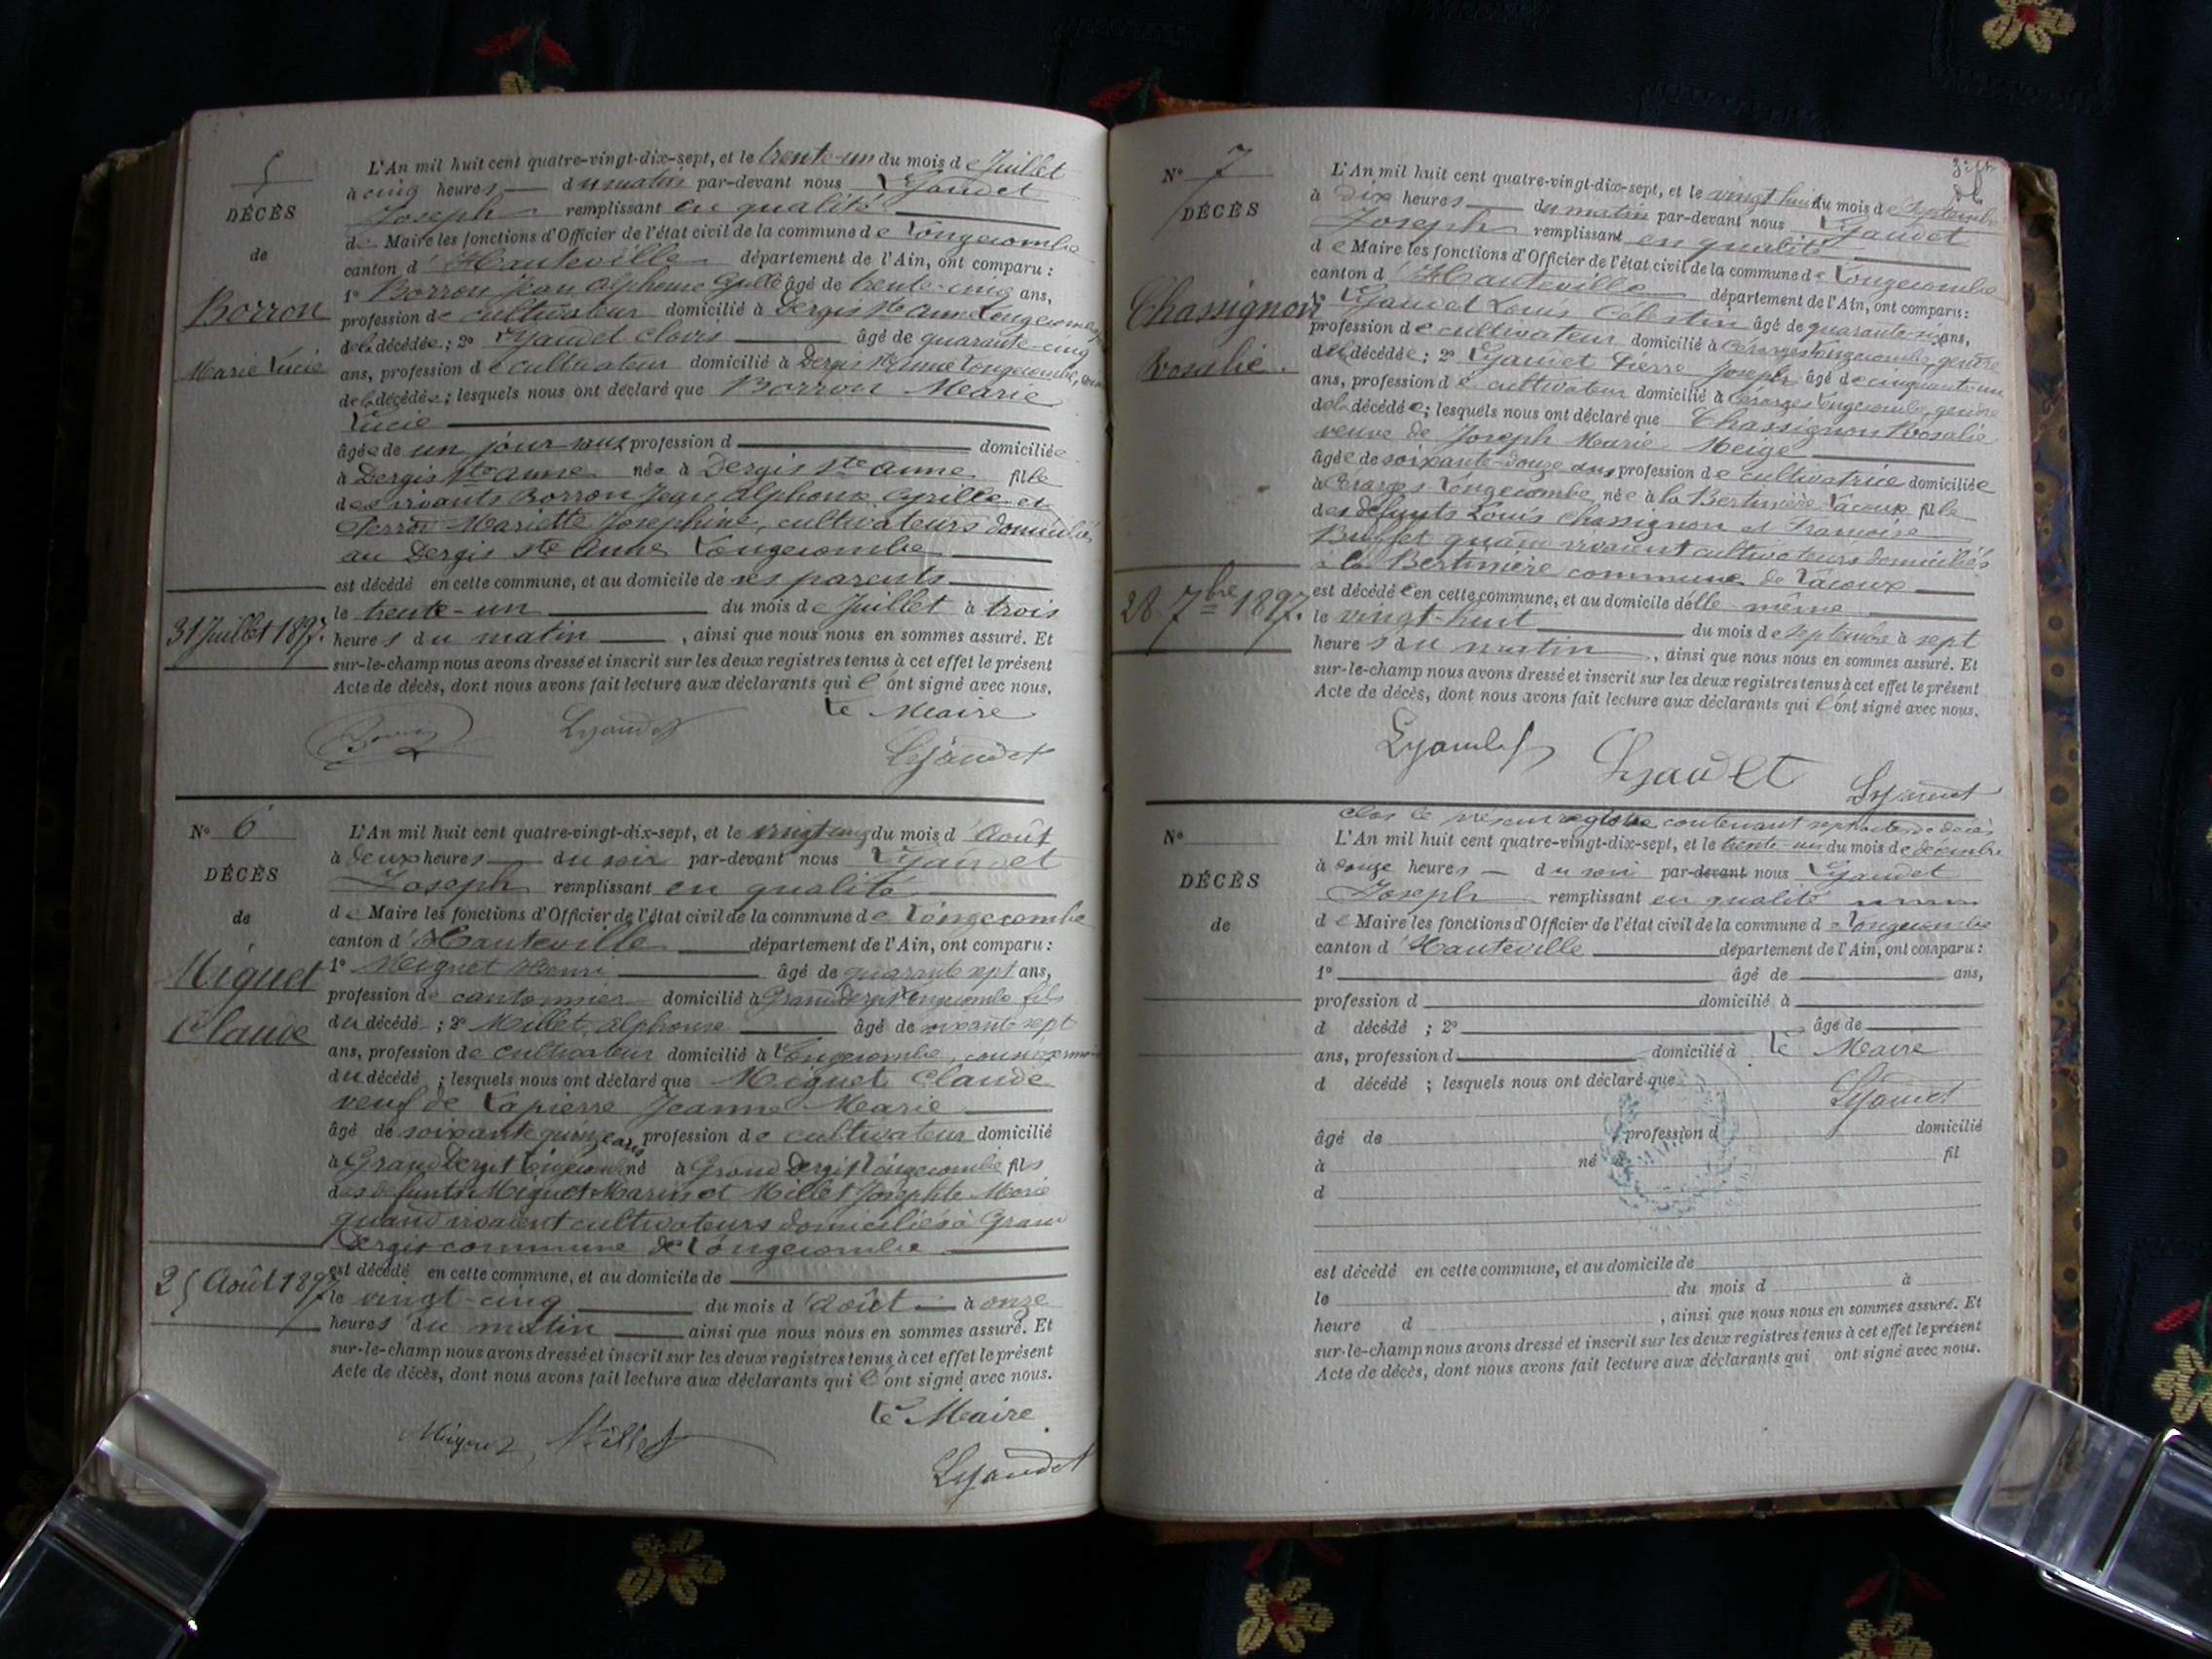 5
DÉCÈS
de
Borron
Marie Lucie
31 Juillet 1897.
L'An mil huit cent quatre-vingt-dix-sept, et le trente-un du mois de Juillet
à cinq heures du matin par-devant nous Lyaudet
Joseph remplissant en qualité
de Maire les fonctions d'Officier de l'état civil de la commune de Longecombe
canton d'Hauteville département de l'Ain, ont comparu :
1° Borron Jean Alphonse âgé de trente-cinq ans,
profession de cultivateur domicilié à Dergis Ste Anne Longecombe
de la décédée ; 2° Lyaudet Clovis âgé de quarante-cinq
ans, profession de cultivateur domicilié à Dergis Ste Anne Longecombe,
de la décédée ; lesquels nous ont déclaré que Borron Marie
Lucie
âgée de un jour sans profession d domiciliée
à Dergis Ste Anne née à Dergis Ste Anne fille
des vivants Borron Jean Alphonse Cyrille et
Perron Mariette Josephine, cultivateurs domiciliés
au Dergis Ste Anne Longecombe
est décédé en cette commune, et au domicile de ses parents
le trente-un du mois de Juillet à trois
heures du matin, ainsi que nous nous en sommes assuré. Et
sur-le-champ nous avons dressé et inscrit sur les deux registres tenus à cet effet le présent
Acte de décès, dont nous avons fait lecture aux déclarants qui l'ont signé avec nous.
Le Maire
Lyaudet
Lyaudet
N° 6
DÉCÈS
de
Miguet
Claude
25 Août 1897.
L'An mil huit cent quatre-vingt-dix-sept, et le vingt cinq du mois d'Août
à deux heures du soir par-devant nous Lyaudet
Joseph remplissant en qualité
de Maire les fonctions d'Officier de l'état civil de la commune de Longecombe
canton d'Hauteville département de l'Ain, ont comparu :
1° Miguet Henri âgé de quarante sept ans,
profession de cantonnier domicilié à Grand Dergit Longecombe fils
du décédé ; 2° Millet Alphonse âgé de soixante sept
ans, profession de cultivateur domicilié à Longecombe, cousin germain
du décédé ; lesquels nous ont déclaré que Miguet Claude
veuf de Lapierre Jeanne Marie
âgé de soixante quinze ans profession de cultivateur domicilié
à Grand Dergit Longecombe né à Grand Dergit Longecombe fils
des défunts Miguet Marin et Millet Josephte Marie
quand vivaient cultivateurs domiciliés à Grand
Dergis commune de Longecombe
est décédé en cette commune, et au domicile de
le vingt-cinq du mois d'Août à onze
heures du matin ainsi que nous nous en sommes assuré. Et
sur-le-champ nous avons dressé et inscrit sur les deux registres tenus à cet effet le présent
Acte de décès, dont nous avons fait lecture aux déclarants qui l'ont signé avec nous.
Le Maire
Miguet Millet
Lyaudet
N° 7
DÉCÈS
de
Chassignon
Rosalie.
28 7bre 1897.
L'An mil huit cent quatre-vingt-dix-sept, et le vingt huit du mois de Septembre
à dix heures du matin par-devant nous Lyaudet
Joseph remplissant en qualité
de Maire les fonctions d'Officier de l'état civil de la commune de Longecombe
canton d'Hauteville département de l'Ain, ont comparu :
1° Lyaudet Louis Célestin âgé de quarante-six ans,
profession de cultivateur domicilié à Longecombe, gendre
de la décédée ; 2° Lyaudet Pierre Joseph âgé de cinquante-un
ans, profession de cultivateur domicilié à Longecombe, gendre
de la décédée ; lesquels nous ont déclaré que Chassignon Rosalie
veuve de Joseph Marie Meige
âgée de soixante-douze ans profession de cultivatrice domiciliée
à Longecombe, née à la Bertinière Lacoux fille
des défunts Louis Chassignon et Francoise
Buffet quand vivaient cultivateurs domiciliés
à la Bertinière commune de Lacoux
est décédée en cette commune, et au domicile d'elle-même
le vingt-huit du mois de Septembre à sept
heures du matin, ainsi que nous nous en sommes assuré. Et
sur-le-champ nous avons dressé et inscrit sur les deux registres tenus à cet effet le présent
Acte de décès, dont nous avons fait lecture aux déclarants qui l'ont signé avec nous.
Lyaudet Lyaudet Lyaudet
Clos le présent registre contenant sept actes de décès
N°
DÉCÈS
de
L'An mil huit cent quatre-vingt-dix-sept, et le trente-un du mois de décembre
à douze heures du soir par-devant nous Lyaudet
Joseph remplissant en qualité
de Maire les fonctions d'Officier de l'état civil de la commune de Longecombe
canton d'Hauteville département de l'Ain, ont comparu :
1° âgé de ans,
profession d domicilié à
d décédé ; 2° âgé de
ans, profession d domicilié à Le Maire
d décédé ; lesquels nous ont déclaré que
Lyaudet
âgé de profession d domicilié
à né à fil
d
est décédé en cette commune, et au domicile de
le du mois d à
heure d , ainsi que nous nous en sommes assuré. Et
sur-le-champ nous avons dressé et inscrit sur les deux registres tenus à cet effet le présent
Acte de décès, dont nous avons fait lecture aux déclarants qui ont signé avec nous.